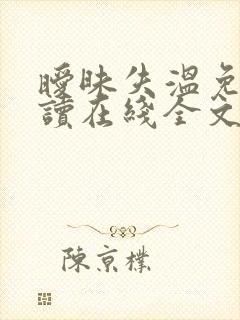 曖昧失溫免
讀在綫全文
陳京樸